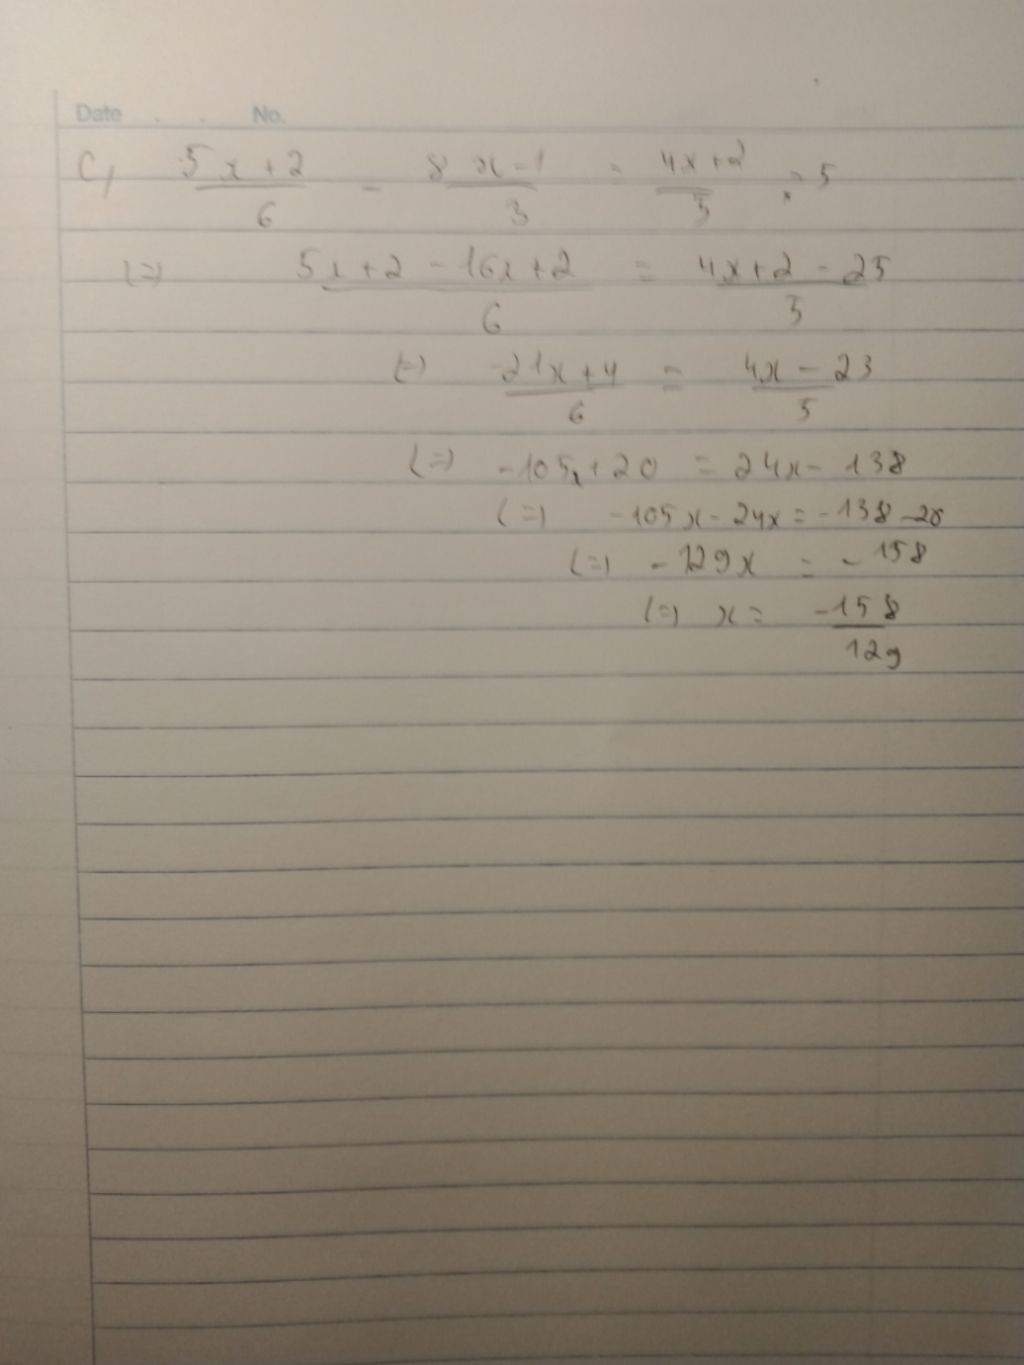 Date . . No.
C, 5x+2/6 - 8x-1/3 = 4x+2/5 - 5
(=) 5x+2-16x+2/6 = 4x+2-25/5
(=) -21x+4/6 = 4x-23/5
(=) -105x+20 = 24x-138
(=) -105x-24x=-138-20
(=) -129x = -158
(=) x= -158/129